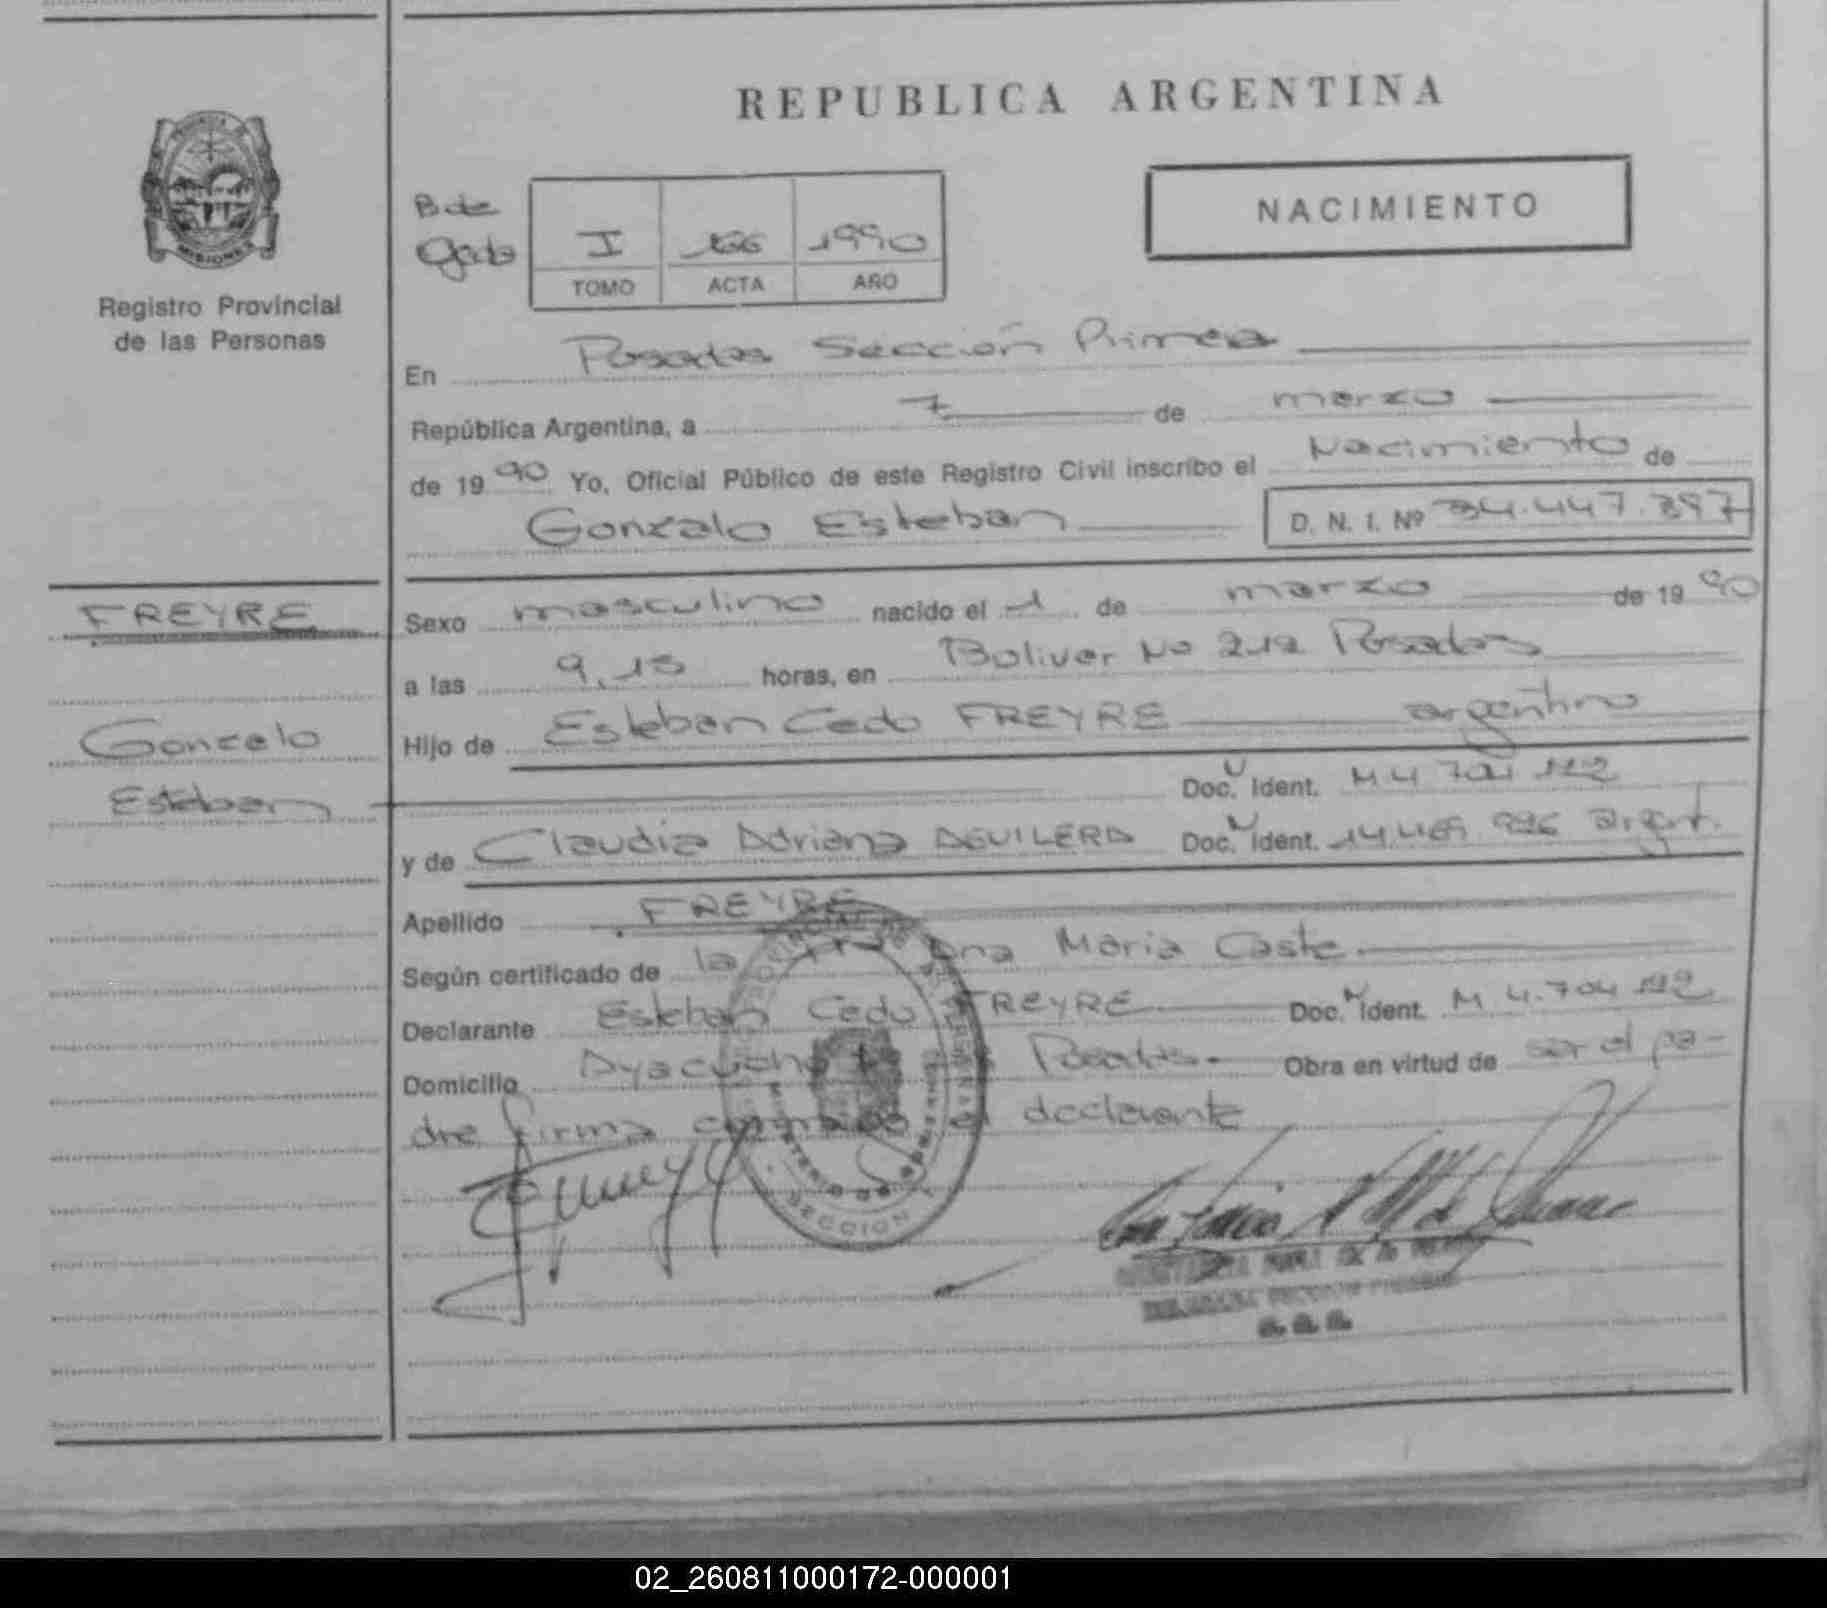 REPUBLICA ARGENTINA
NACIMIENTO
PROVINCIA DE
MISIONES
Registro Provincial
de las Personas
I 166 1990
TOMO ACTA AÑO
En Posadas Sección Primera
República Argentina, a 7 de marzo
de 1990 Yo, Oficial Público de este Registro Civil inscribo el Nacimiento de
Gonzalo Esteban D. N. I. Nº 34.447.397
FREYRE
Gonzalo
Esteban
Sexo masculino nacido el 1 de marzo de 1990
a las 9,15 horas, en Bolivar No 212 Posadas
Hijo de Esteban Cedo FREYRE argentino
Doc. Ident. M 4 704 112
y de Claudia Adriana AGUILERA Doc. Ident. 14.469.996 argent.
Apellido FREYRE
Según certificado de la Ana Maria Caste
Declarante Esteban Cedo FREYRE Doc. Ident. M 4.704 112
Domicilio Ayacucho Posadas Obra en virtud de ser el pa-
dre firma el declarante
SECCION
02_260811000172-000001